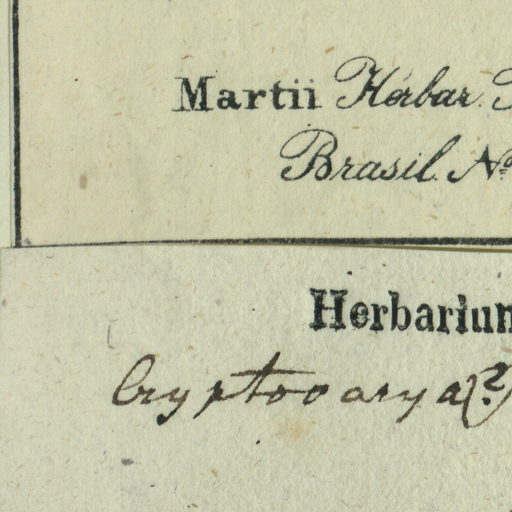 Martii Herbar.
Brasil. No
Herbarium
Cryptocarya(?)